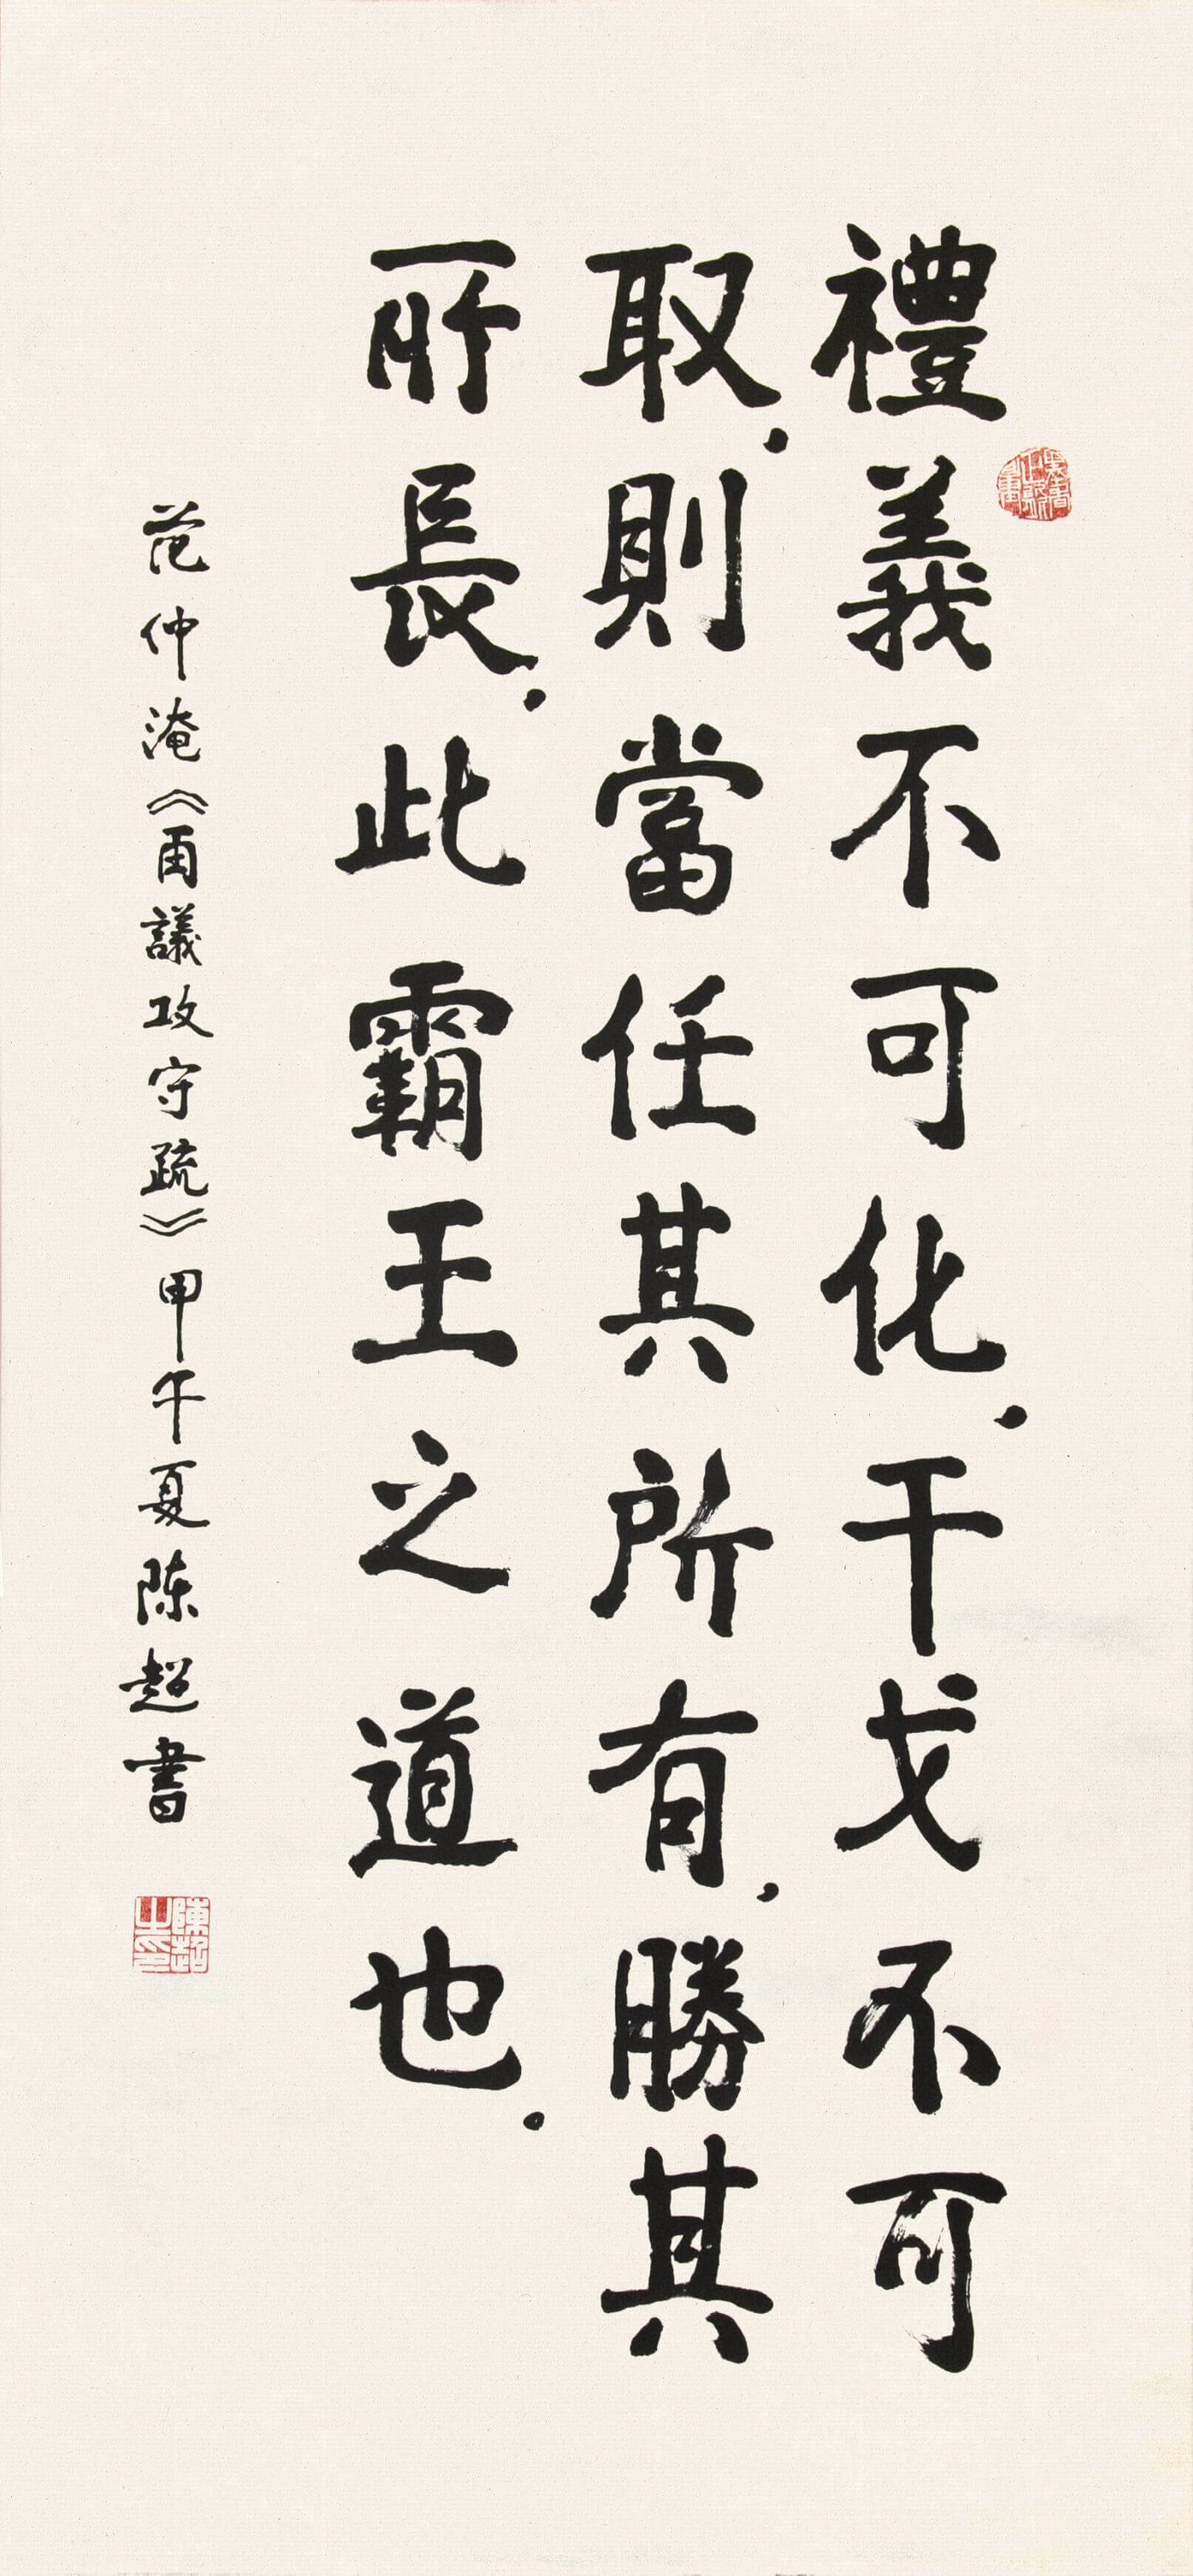 禮義不可化，干戈不可
取，則當任其所有，勝其
所長，此霸王之道也。
范仲淹《再議攻守疏》甲午夏陈超書
陳超之印